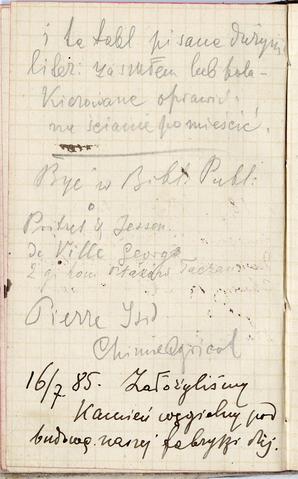 i tę tabl pisane dużymi
liter: za szkłem lub pola-
kierowane oprawić i
na ścianie pomieścić.
Być w Bibl: Publ:
Jessen
De Ville George
Pierre Isid
Chimie Agricol
16/7 85. Założyliśmy
Kamień węgielny pod
budowę naszej fabryki